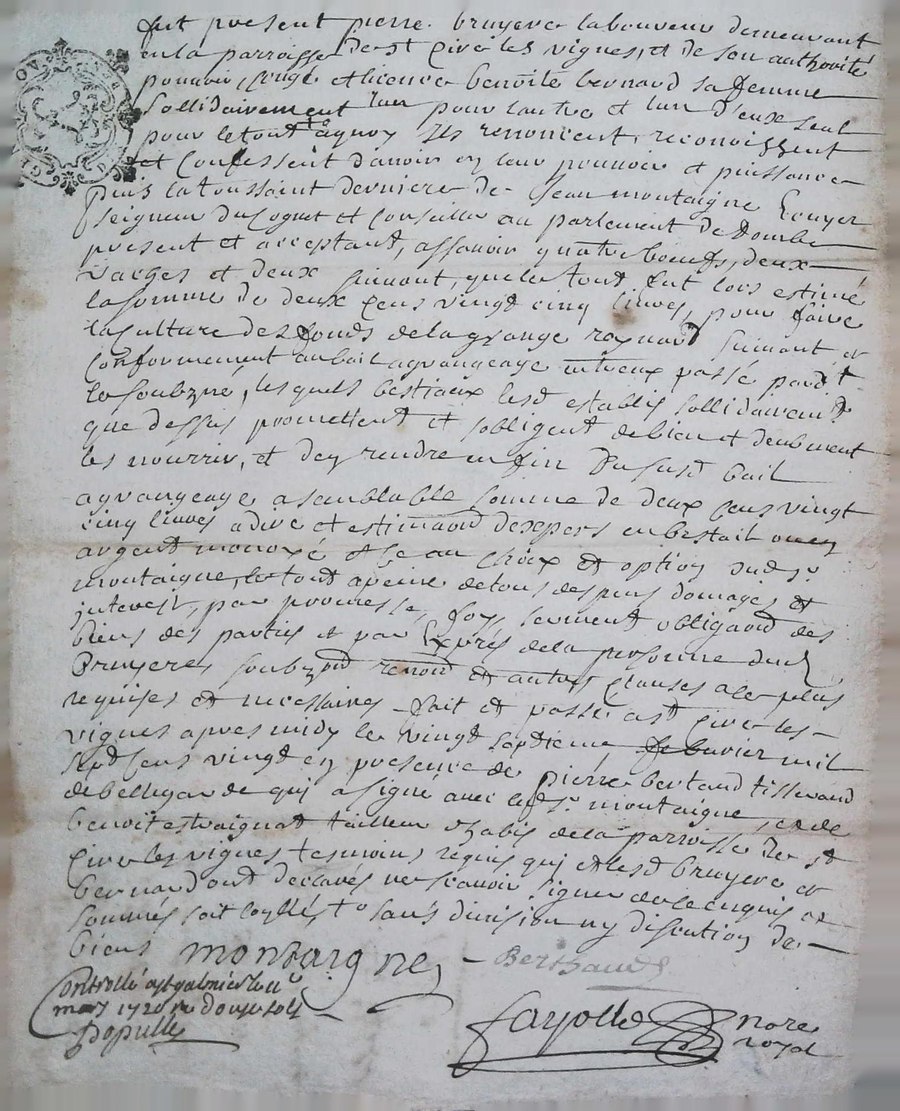 fut present pierre bruyere laboureur demeurant
en la parroisse de st Cire les vignes, et de son authorité
pouvoir, congé et licence benoite bernard sa femme
sollidairement l'un pour l'autre et l'un d'eux seul
pour le tout a quoy ils renoncent, reconoissent
et Confessent d'avoir en leur pouvoir et puissance
puis la toussaint derniere de Jean montaigne Ecuyer
seigneur du Cognet et Conseiller au parlement de Dombe
present et acceptant, assavoir quatre boeufs, deux
vaches et deux, que le tout fut lors estimé
la somme de deux Cens vingt cinq livres, pour faire
la Culture des fonds de la grange suivant et
Conformement au bail a grangeage entreux passé pard^t
le soubzné, lesquels bestiaux lesd establis sollidairem^t
que dessus promettent et sobligent de bien et deubment
les nourrir, et d'en rendre en fin du susd bail
a grangeage a semblable somme de deux Cens vingt
cinq livres a dire et estimaōn d'expers en bestail ou en
argent monoyé et ce au choix et option dud s^r
montaigne, le tout a peine de tous despens domages et
interest, par promesse, foy, serment obligaōn des
biens des parties et par Exprés de la personne dud
Bruyere, renonō et autres Clauses a ce plus
requises et necessaires fait et passé a st Cire les
vignes apres midy le vingt septieme febvrier mil
sept Cens vingt en presence de pierre bertaud tisserand
de bellegarde qui a signé avec led s^r montaigne, et de
benoit tailleur d'habis de la parroisse de st
Cire les vignes tesmoins requis qui et lesd bruyere et
bernard ont declarés ne scavoir signer de ce enquis et
sommés soit sans division ny discution de
biens montaigne Berthaud
Controllé a st galmier le
mars 1720 r douze sols
Dopulle
fayolle nore
royal